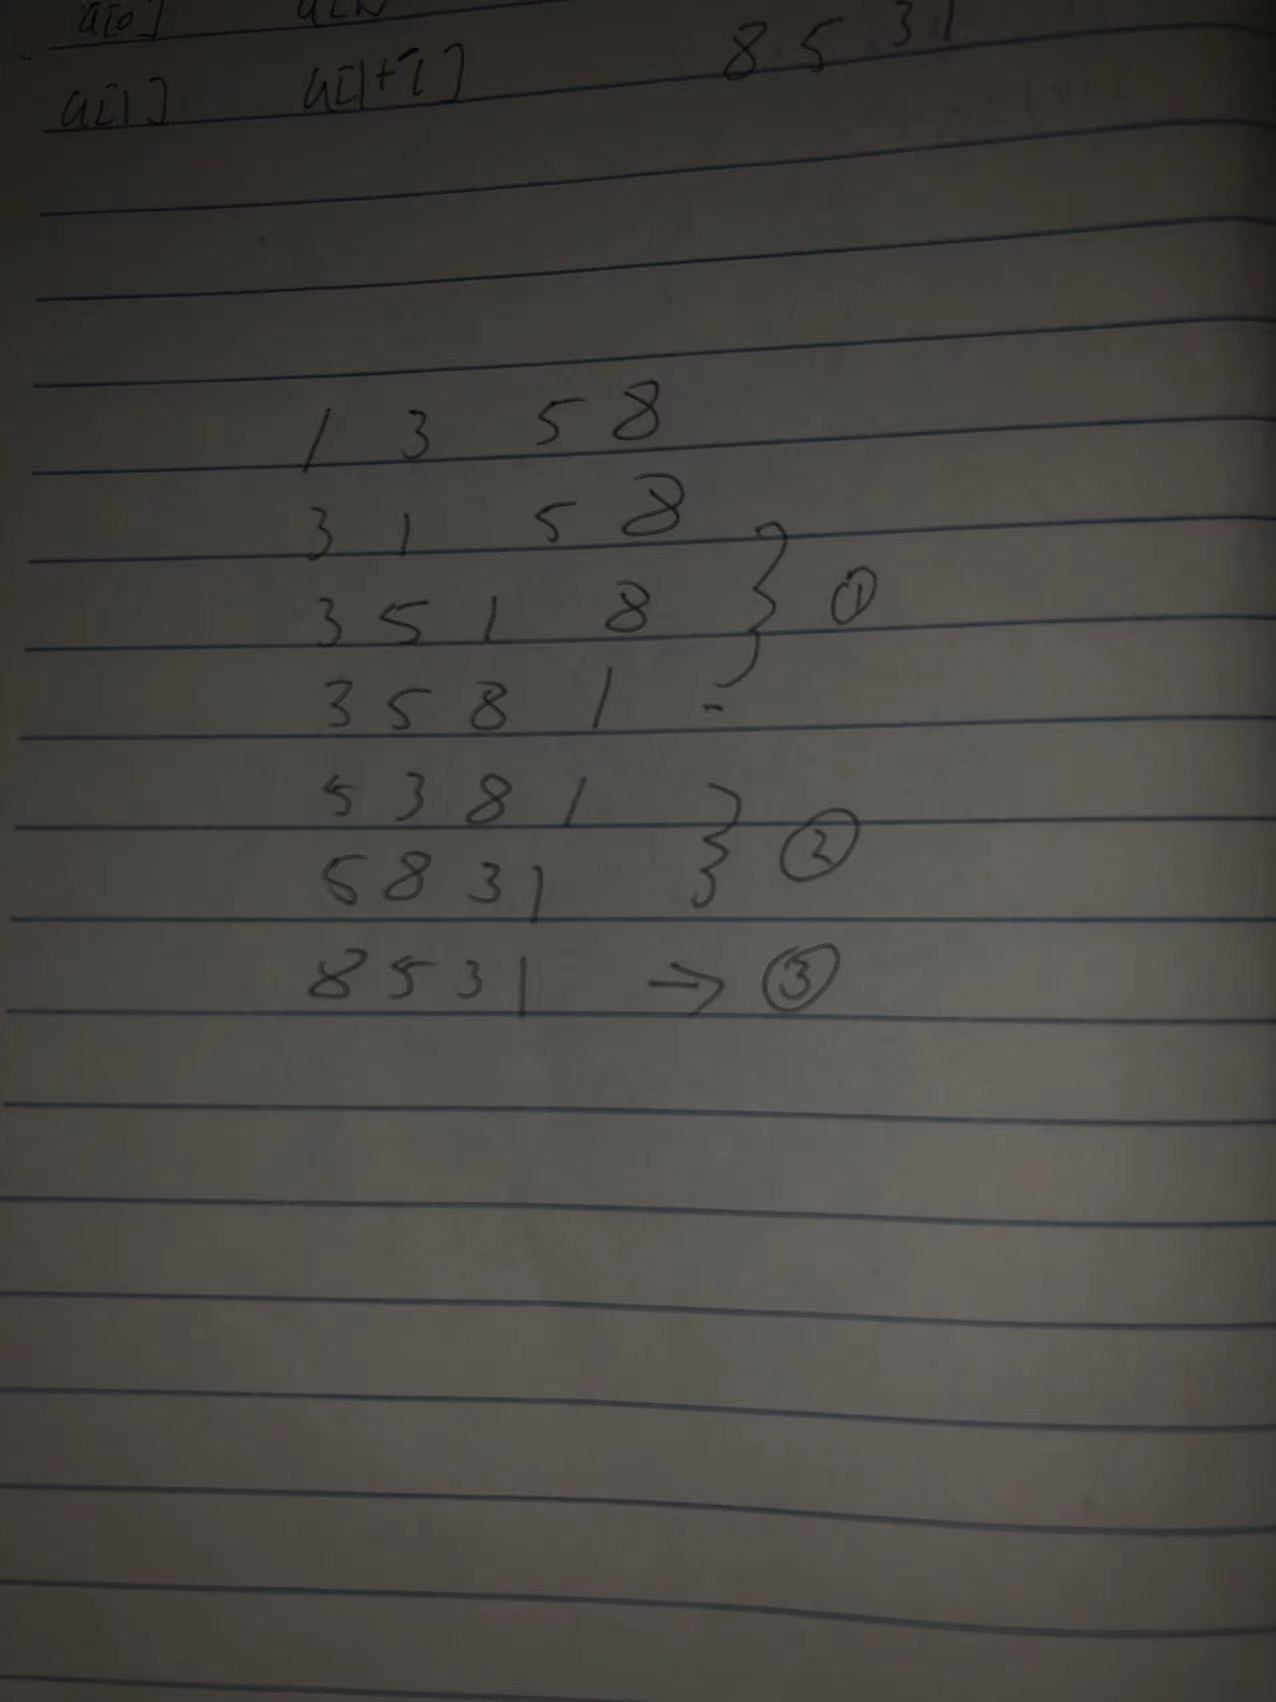 a[0]
a[1] a[1+i] 8 5 3 1
1 3 5 8
3 1 5 8
3 5 1 8 } ①
3 5 8 1 -
5 3 8 1
5 8 3 1 } ②
8 5 3 1 → ③